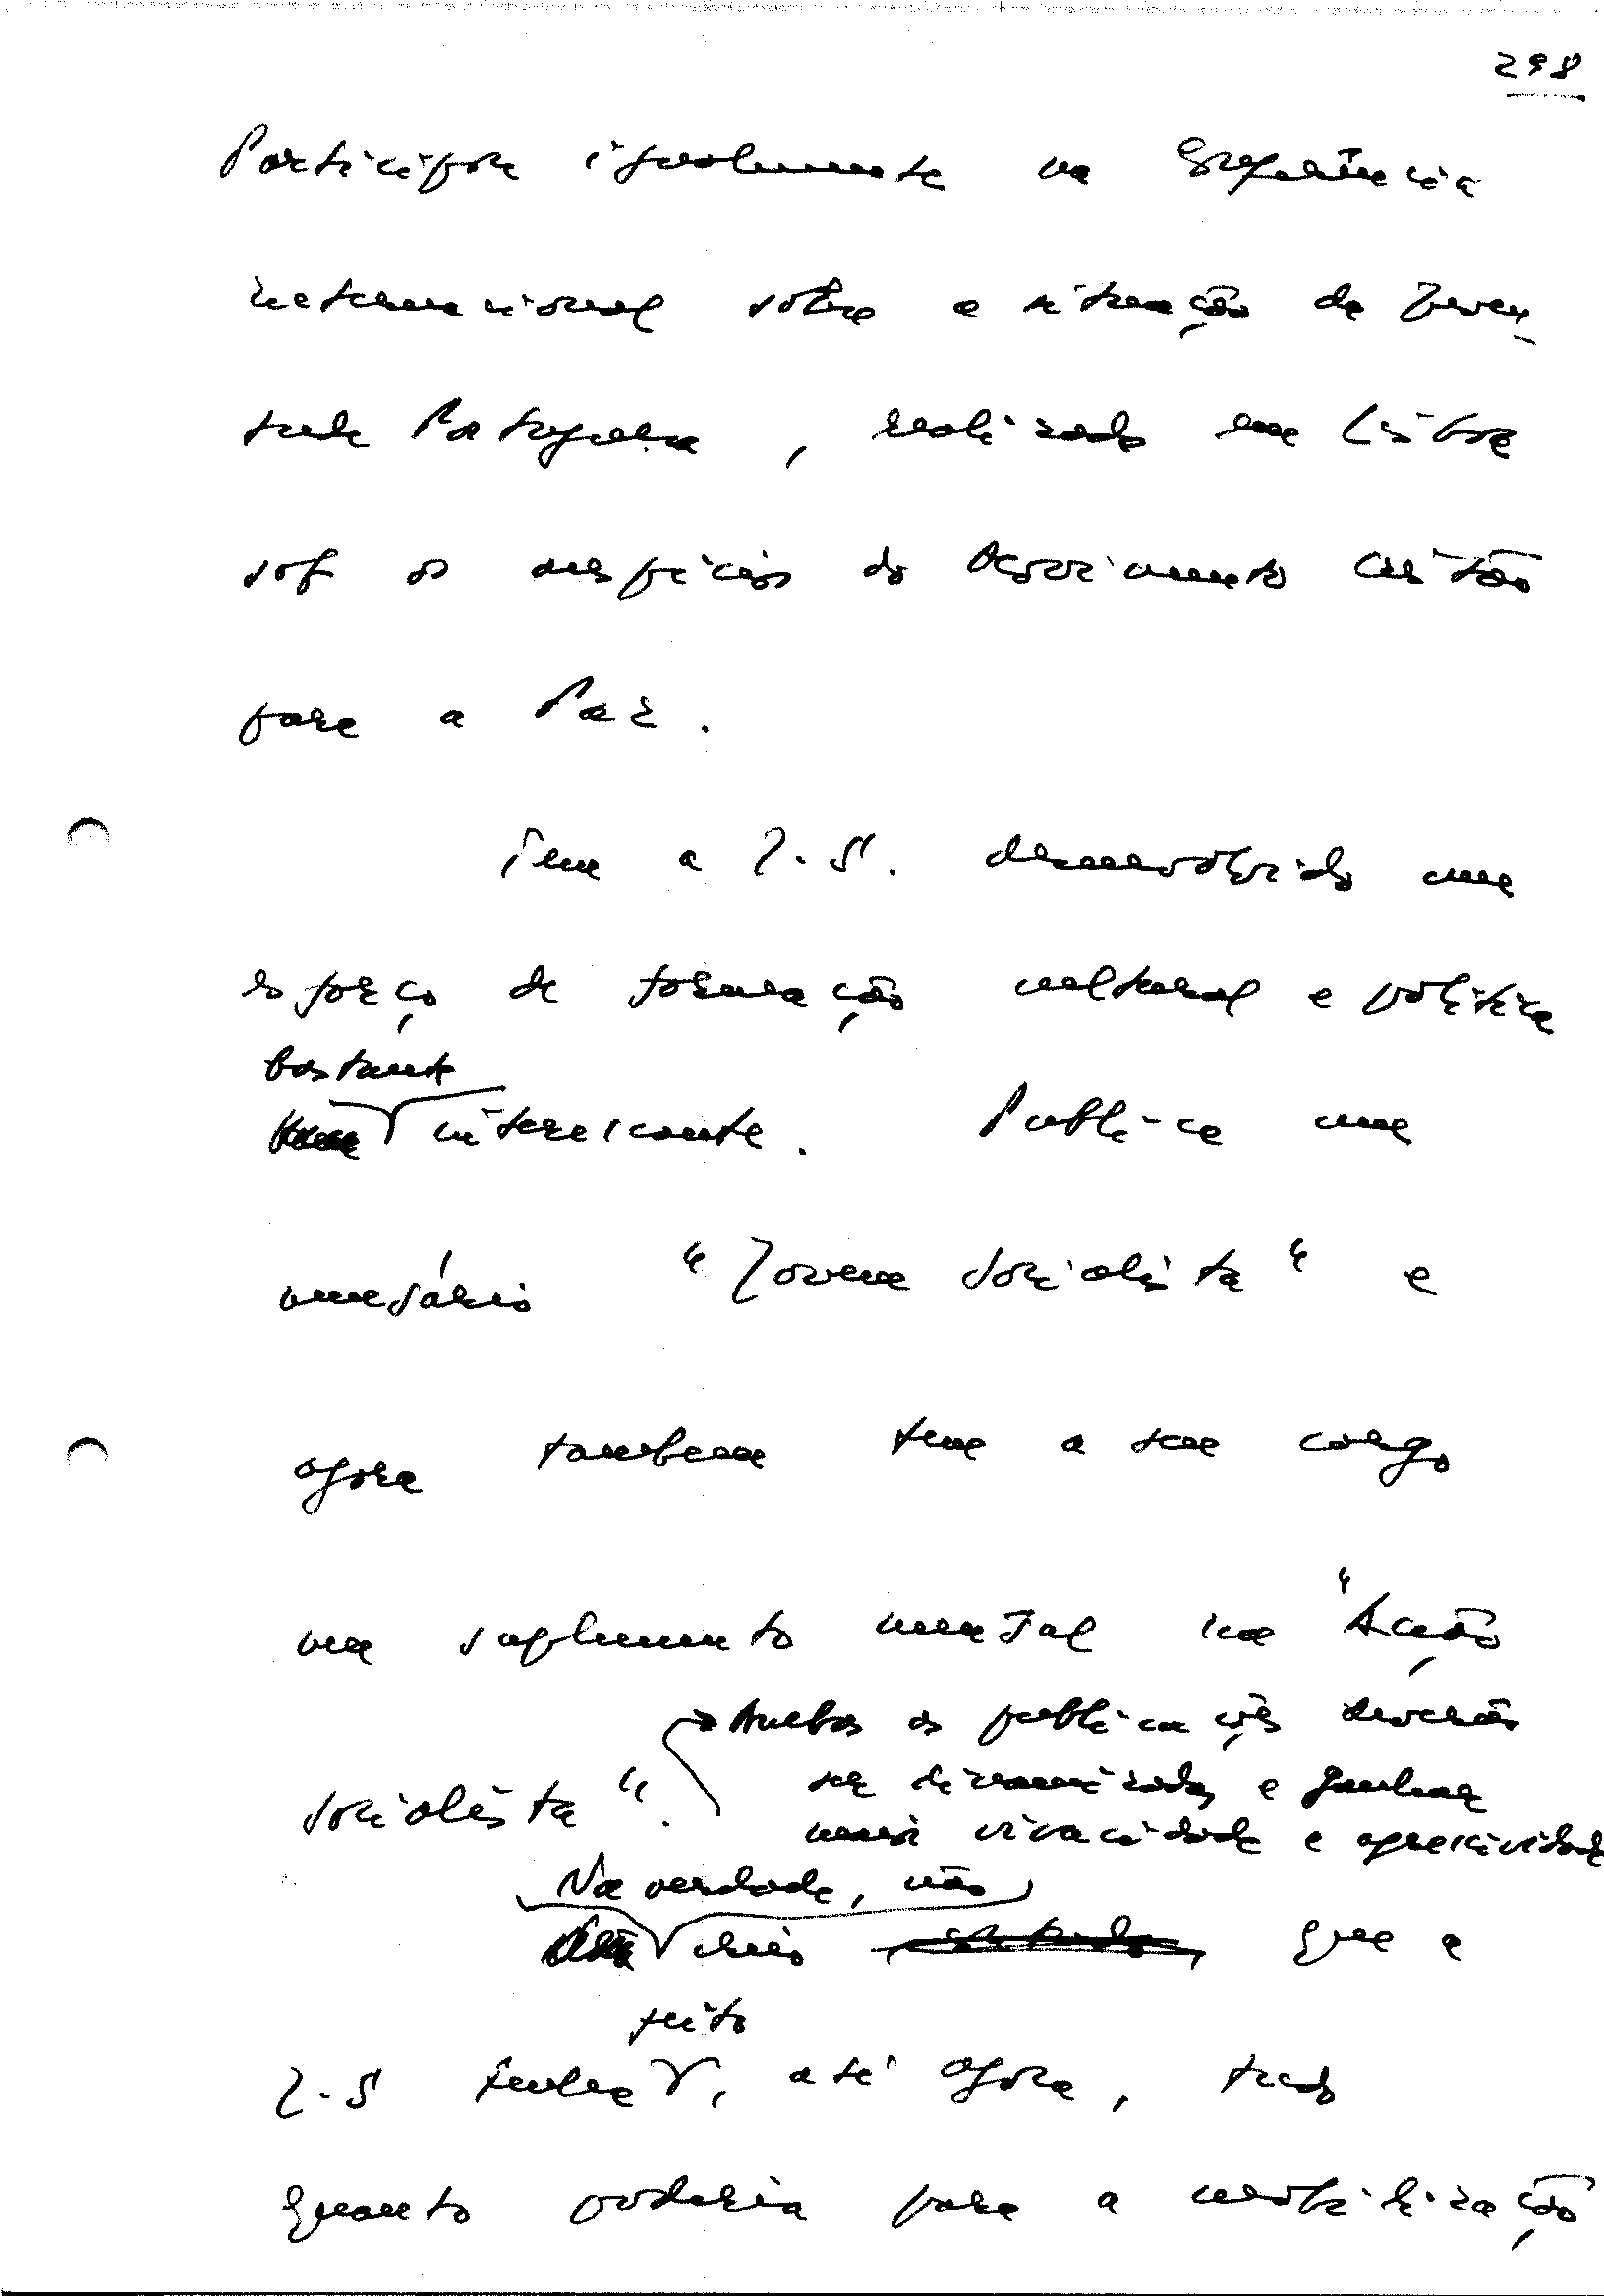 298
Participou igualmente na Conferência
internacional sobre a situação da Juven
tude Portuguesa, realizada em Lisboa
sob os auspícios do Movimento Cristão
para a Paz.
Tem a J.S. desenvolvido um
esforço de formação cultural e política
bastante
interessante. Publica um
"Jovem Socialista" e
agora também tem a seu cargo
um suplemento mensal na "Acção
Ambas as publicações deverão
Socialista".
ser dinamizadas e ganhar
mais vivacidade e agressividade
Na verdade, não
creio que a
feito
J.S tenha, até agora, tudo
quanto poderia para a mobilização